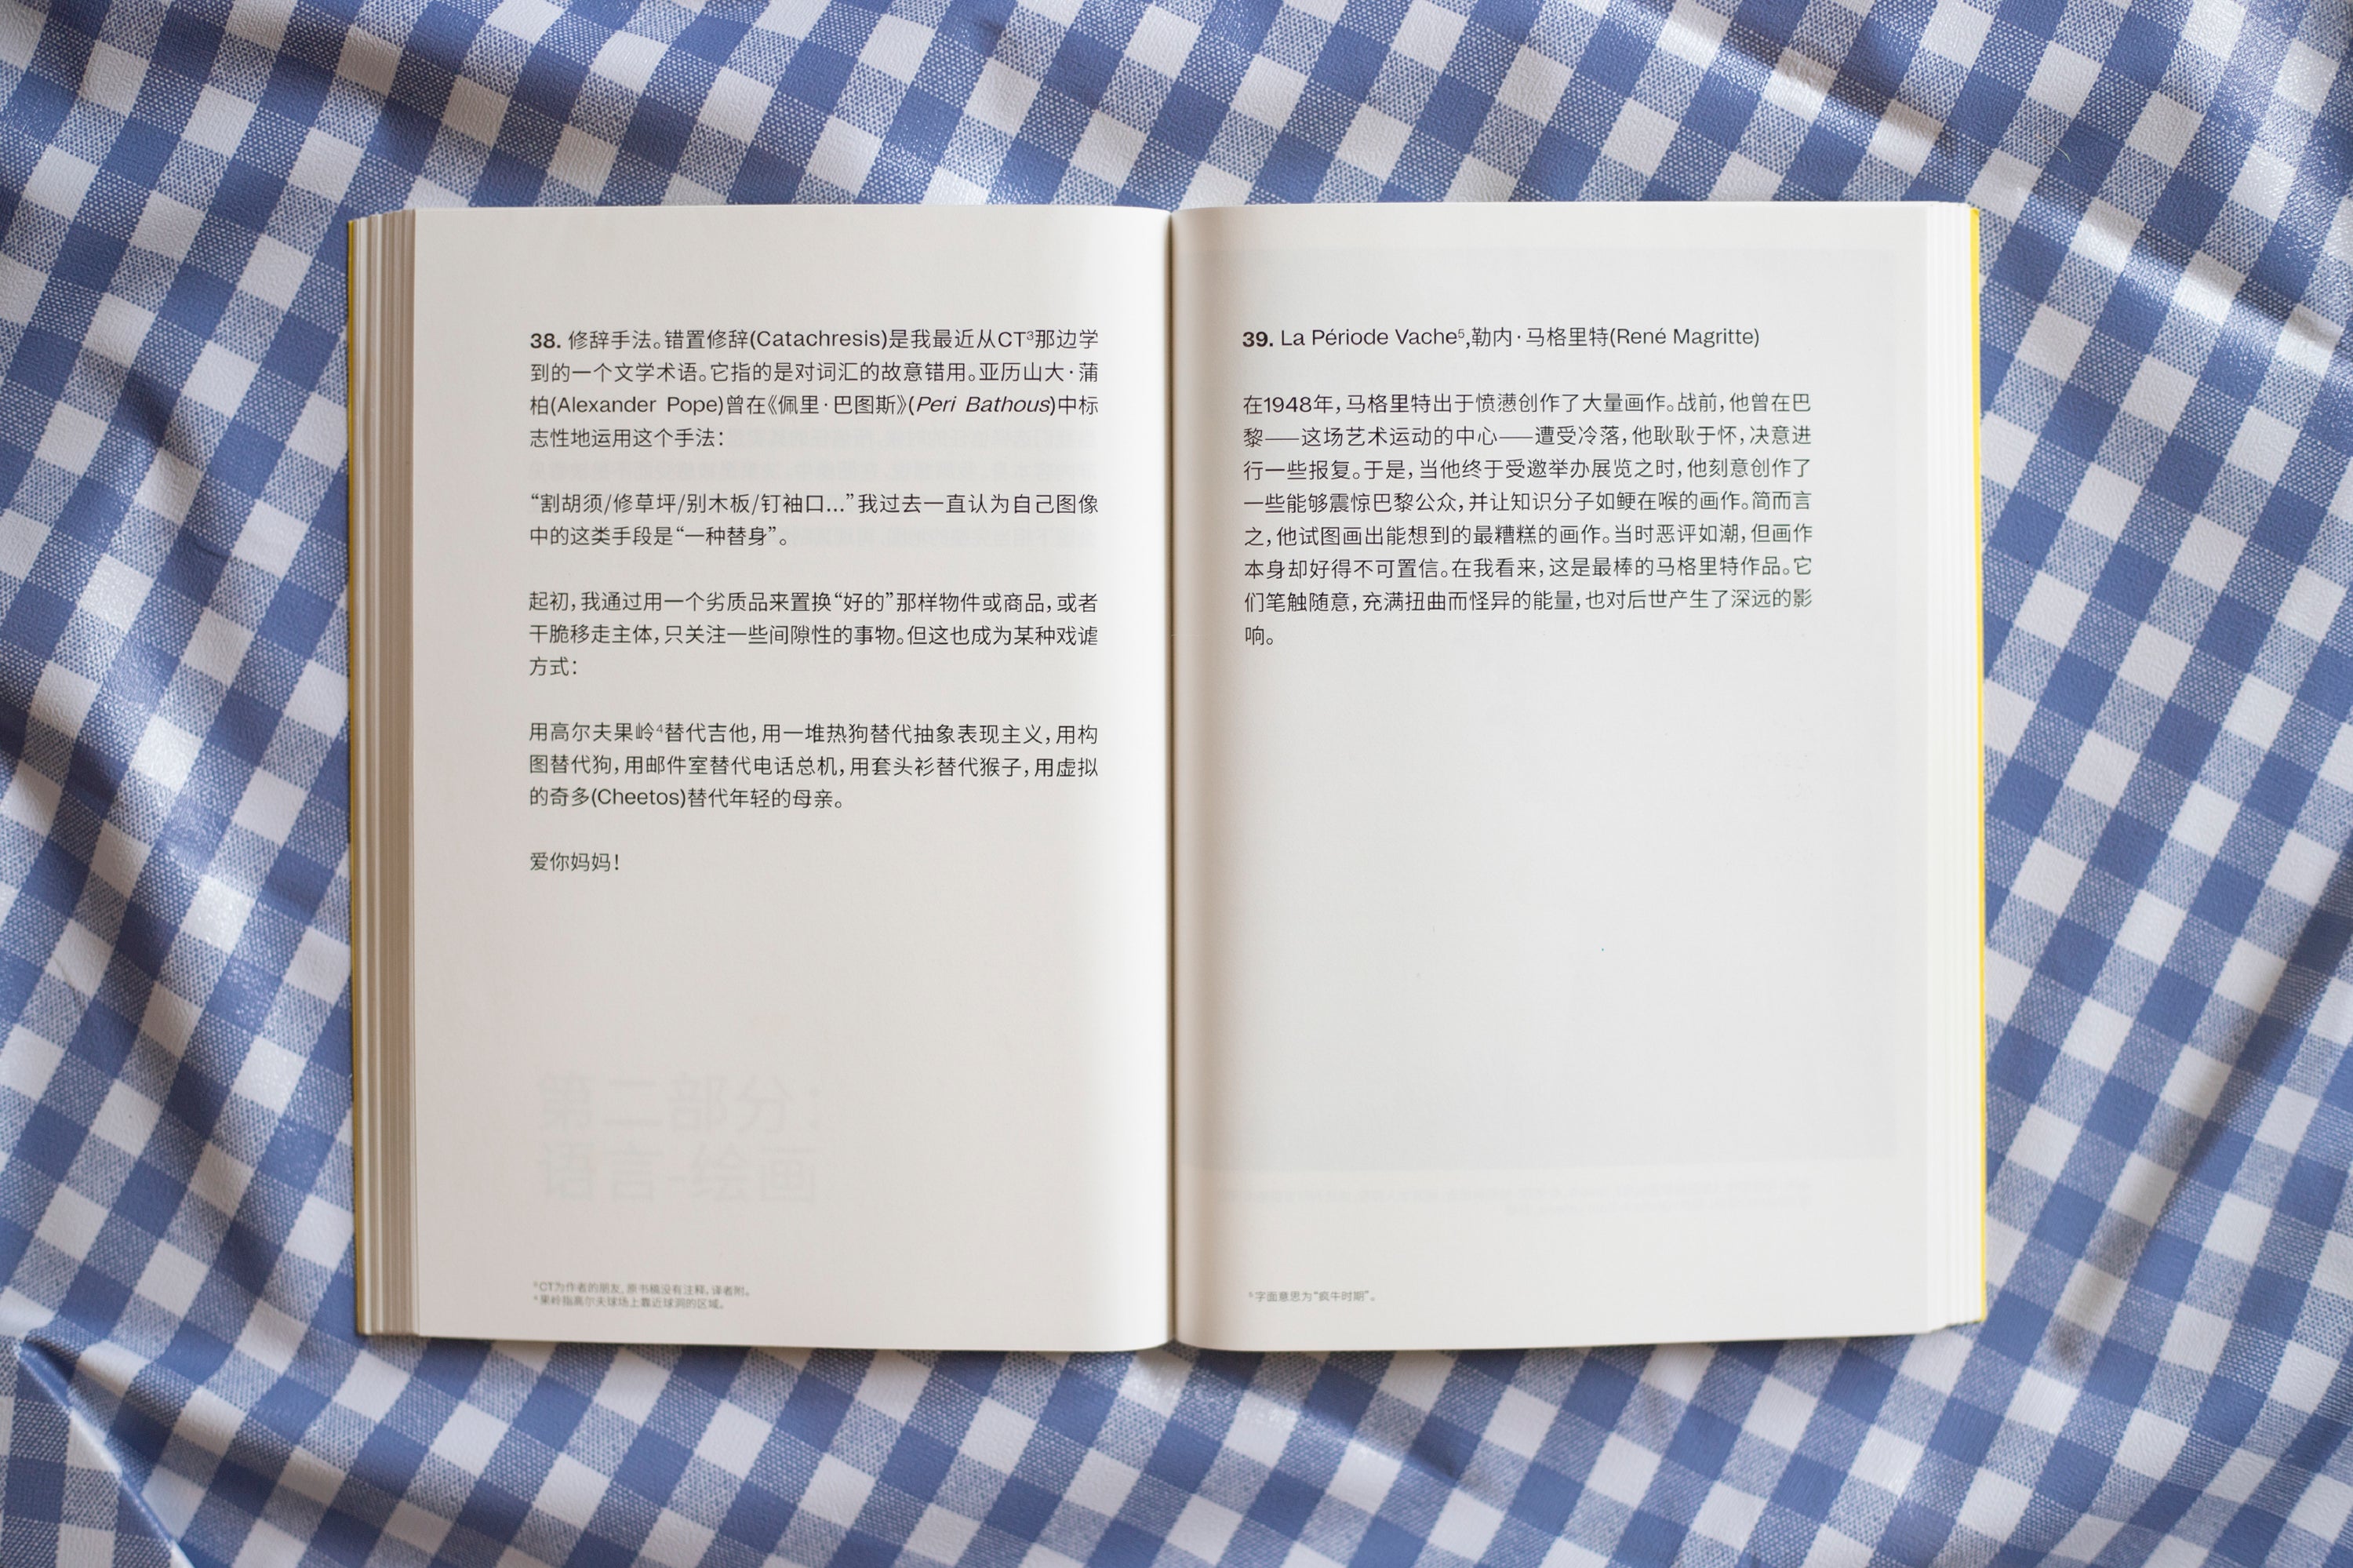 38. 修辞手法。错置修辞(Catachresis)是我最近从CT³那边学
到的一个文学术语。它指的是对词汇的故意错用。亚历山大·蒲
柏(Alexander Pope)曾在《佩里·巴图斯》(Peri Bathous)中标
志性地运用这个手法：
“割胡须/修草坪/别木板/钉袖口...”我过去一直认为自己图像
中的这类手段是“一种替身”。
起初，我通过用一个劣质品来置换“好的”那样物件或商品，或者
干脆移走主体，只关注一些间隙性的事物。但这也成为某种戏谑
方式：
用高尔夫果岭⁴替代吉他，用一堆热狗替代抽象表现主义，用构
图替代狗，用邮件室替代电话总机，用套头衫替代猴子，用虚拟
的奇多(Cheetos)替代年轻的母亲。
爱你妈妈！
第二部分：
语言-绘画
³CT为作者的朋友，原书稿没有注释，译者附。
⁴果岭指高尔夫球场上靠近球洞的区域。
39. La Période Vache⁵,勒内·马格里特(René Magritte)
在1948年，马格里特出于愤懑创作了大量画作。战前，他曾在巴
黎——这场艺术运动的中心——遭受冷落，他耿耿于怀，决意进
行一些报复。于是，当他终于受邀举办展览之时，他刻意创作了
一些能够震惊巴黎公众，并让知识分子如鲠在喉的画作。简而言
之，他试图画出能想到的最糟糕的画作。当时恶评如潮，但画作
本身却好得不可置信。在我看来，这是最棒的马格里特作品。它
们笔触随意，充满扭曲而怪异的能量，也对后世产生了深远的影
响。
⁵字面意思为“疯牛时期”。